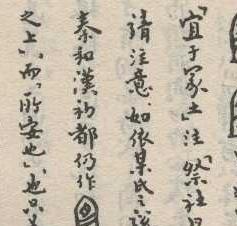 「宜于冢土」注「祭社曰
請注意、如依某氏之說
秦和漢初都仍作
之上、而「所安也」也只